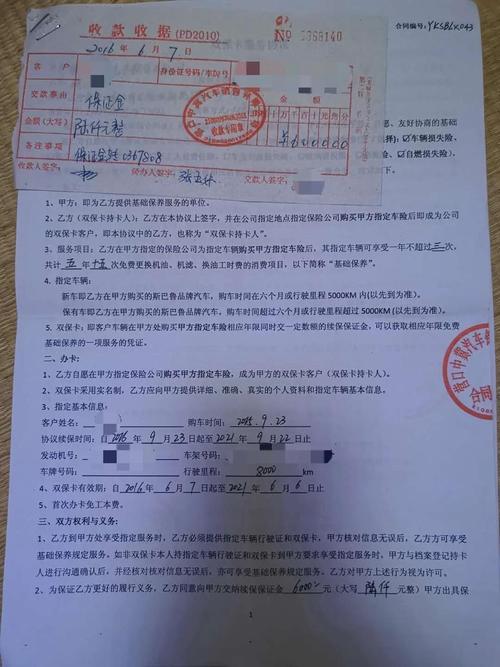 合同编号: YKSBLX043
收款收据 (PD2010) № 0368140
2016年6月7日
客户
身份证号码/车牌号
交款事由 保证金
金额(大写) 陆仟元整
金额
备注事项 保证金转0367808
收款人签字:
经办人签字:
交款人签字:
收款专用章
友好协商的基础
☑车辆损失险,
☑自燃损失险)
1、甲方:即为乙方提供基础保养服务的单位。
2、乙方(双保卡持卡人):乙方在本协议上签字,并在公司指定地点指定保险公司购买甲方指定车险后即成为公司
的双保卡客户,即本协议中的乙方,也称为“双保卡持卡人”。
3、服务项目:乙方在甲方指定的保险公司为指定车辆购买甲方指定车险后,其指定车辆可享受一年不超过三次,
共计 五 年 十五 次免费更换机油、机滤、换油工时费的消费项目,以下简称“基础保养”。
4、指定车辆:
新车即乙方在甲方购买的斯巴鲁品牌汽车,购车时间在六个月或行驶里程 5000KM 内(以先到为准)。
保有车即乙方在甲方购买的斯巴鲁品牌汽车,购车时间超过六个月或行驶里程超过 5000KM(以先到为准)。
5、双保卡:即客户车辆在甲方处购买甲方指定车险相应年限同时交一定数额的续保保证金,可以获取相应年限免费
基础保养的一项服务的凭证。
二、办卡:
1、乙方自愿在甲方指定保险公司购买甲方指定车险,成为甲方的双保卡客户(双保卡持卡人)。
2、双保卡采用实名制,乙方应向甲方提供详细、准确、真实的个人资料和指定车辆基本信息。
3、指定基本信息:
客户姓名: 购车时间: 2015.9.23
协议续保时间:自2016年9月23日起至2021年9月22日止
发动机号: 车架号:
车牌号码: 行驶里程: 8000 km
4、双保卡有效期:自2016年6月7日起至2021年6月6日止
5、首次办卡免工本费。
三、双方权利与义务:
1、乙方到甲方处享受指定服务时,乙方必须提供指定车辆行驶证和双保卡,甲方核对信息无误后,乙方方可享受
基础保养规定服务。如非双保卡本人持指定车辆行驶证和双保卡到甲方要求享受指定服务时,甲方与档案登记持卡
人进行沟通确认后,并经核对核对信息无误后,亦可享受基础保养规定服务。乙方对甲方上述行为视为许可。
2、为保证乙方更好的履行义务,乙方同意向甲方交纳续保保证金 6000 (大写 陆仟 元整)甲方出具保
1